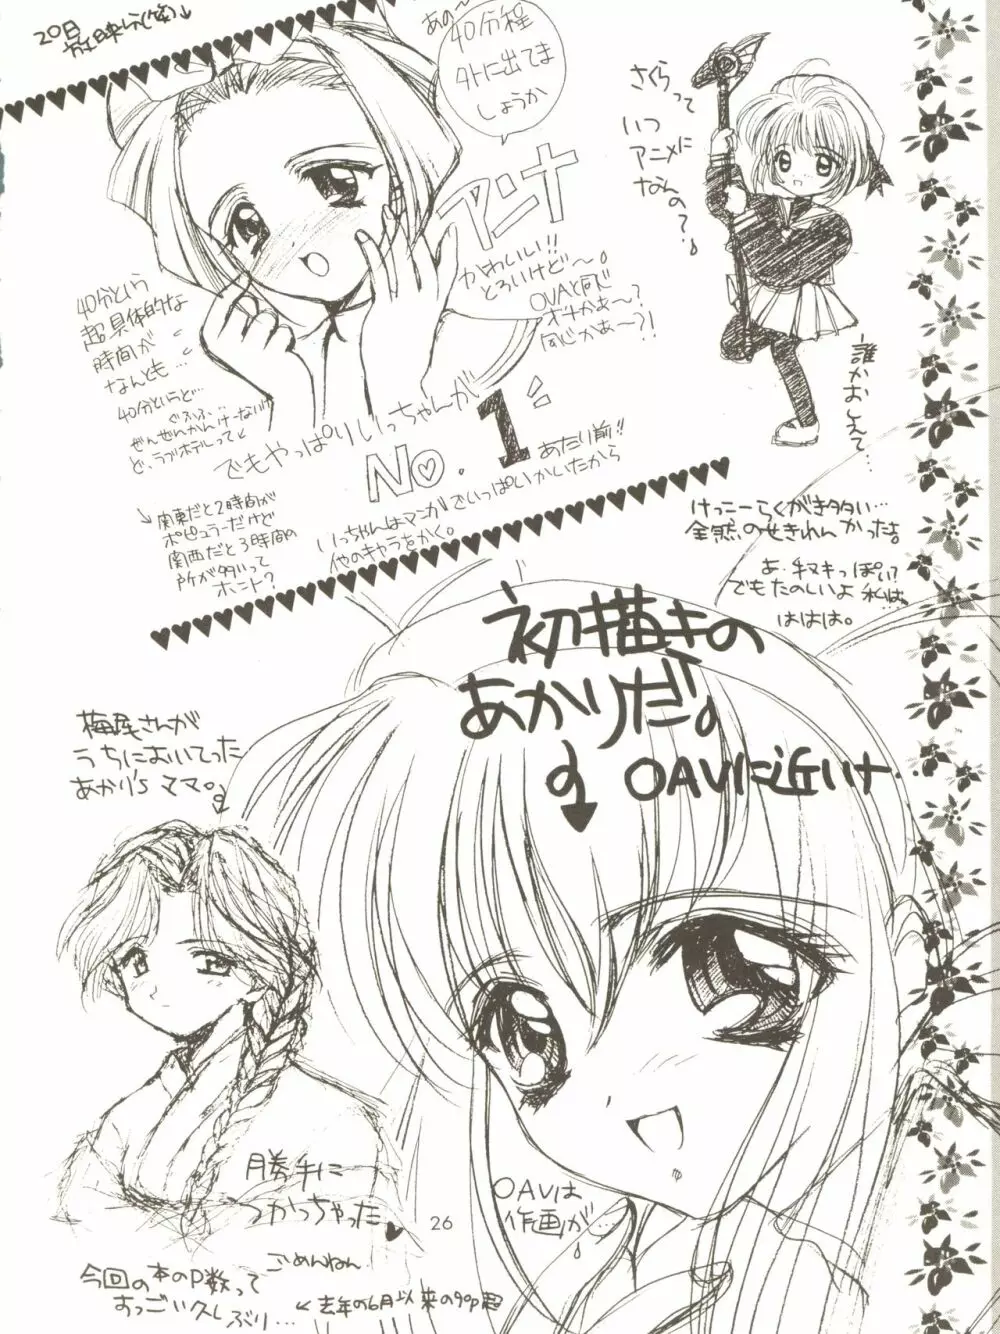 20日
放映分(笑)↓
あの〜
40分程
外に出てま
しょうか
アンナ
かわいい!!
とろいけど〜。
OVAと同じ
同じかぁ〜?!
さくらって
いつ
アニメに
なんの?
誰かおしえて…
40分という
超具体的な
時間が
なんとも…
40分というと…
ぐふふ…
ぜんぜんかんけーないけ
ど、ラブホテルって↙
↘関東だと2時間が
ポピュラーだけど
関西だと3時間の
所が多いって
ホント?
でもやっぱりいっちゃんが
No. 1
あたり前!!
いっちゃんはマンガでいっぱいかいたから
他のキャラをかく。
けっこーらくがき多い…
全然のせきれんかった。
あ…手ヌキっぽい?
でもたのしいよ私は。
ははは。
初描きの
あかりだ。
OAVに近いけ…
梅尾さんが
うちにおいてった
あかり's ママ。
勝手に
つかっちゃった
ごめんねん
OAVは
作画が…
26
今回の本のP数って
すっごい久しぶり…
←去年の6月以来の90p超